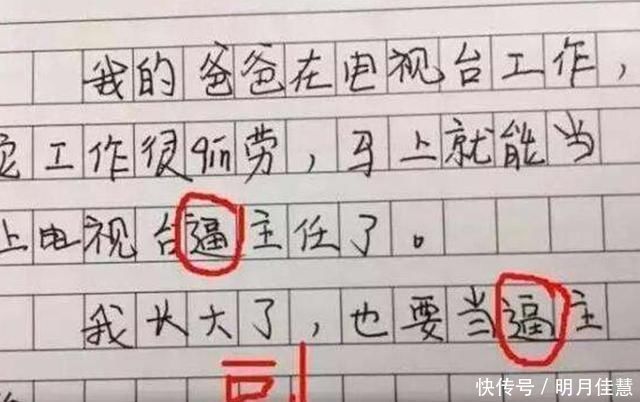 我的爸爸在电视台工作，
工作很qin劳，马上就能当
上电视台逼主任了。
我长大了，也要当逼主
快传号／明月佳慧